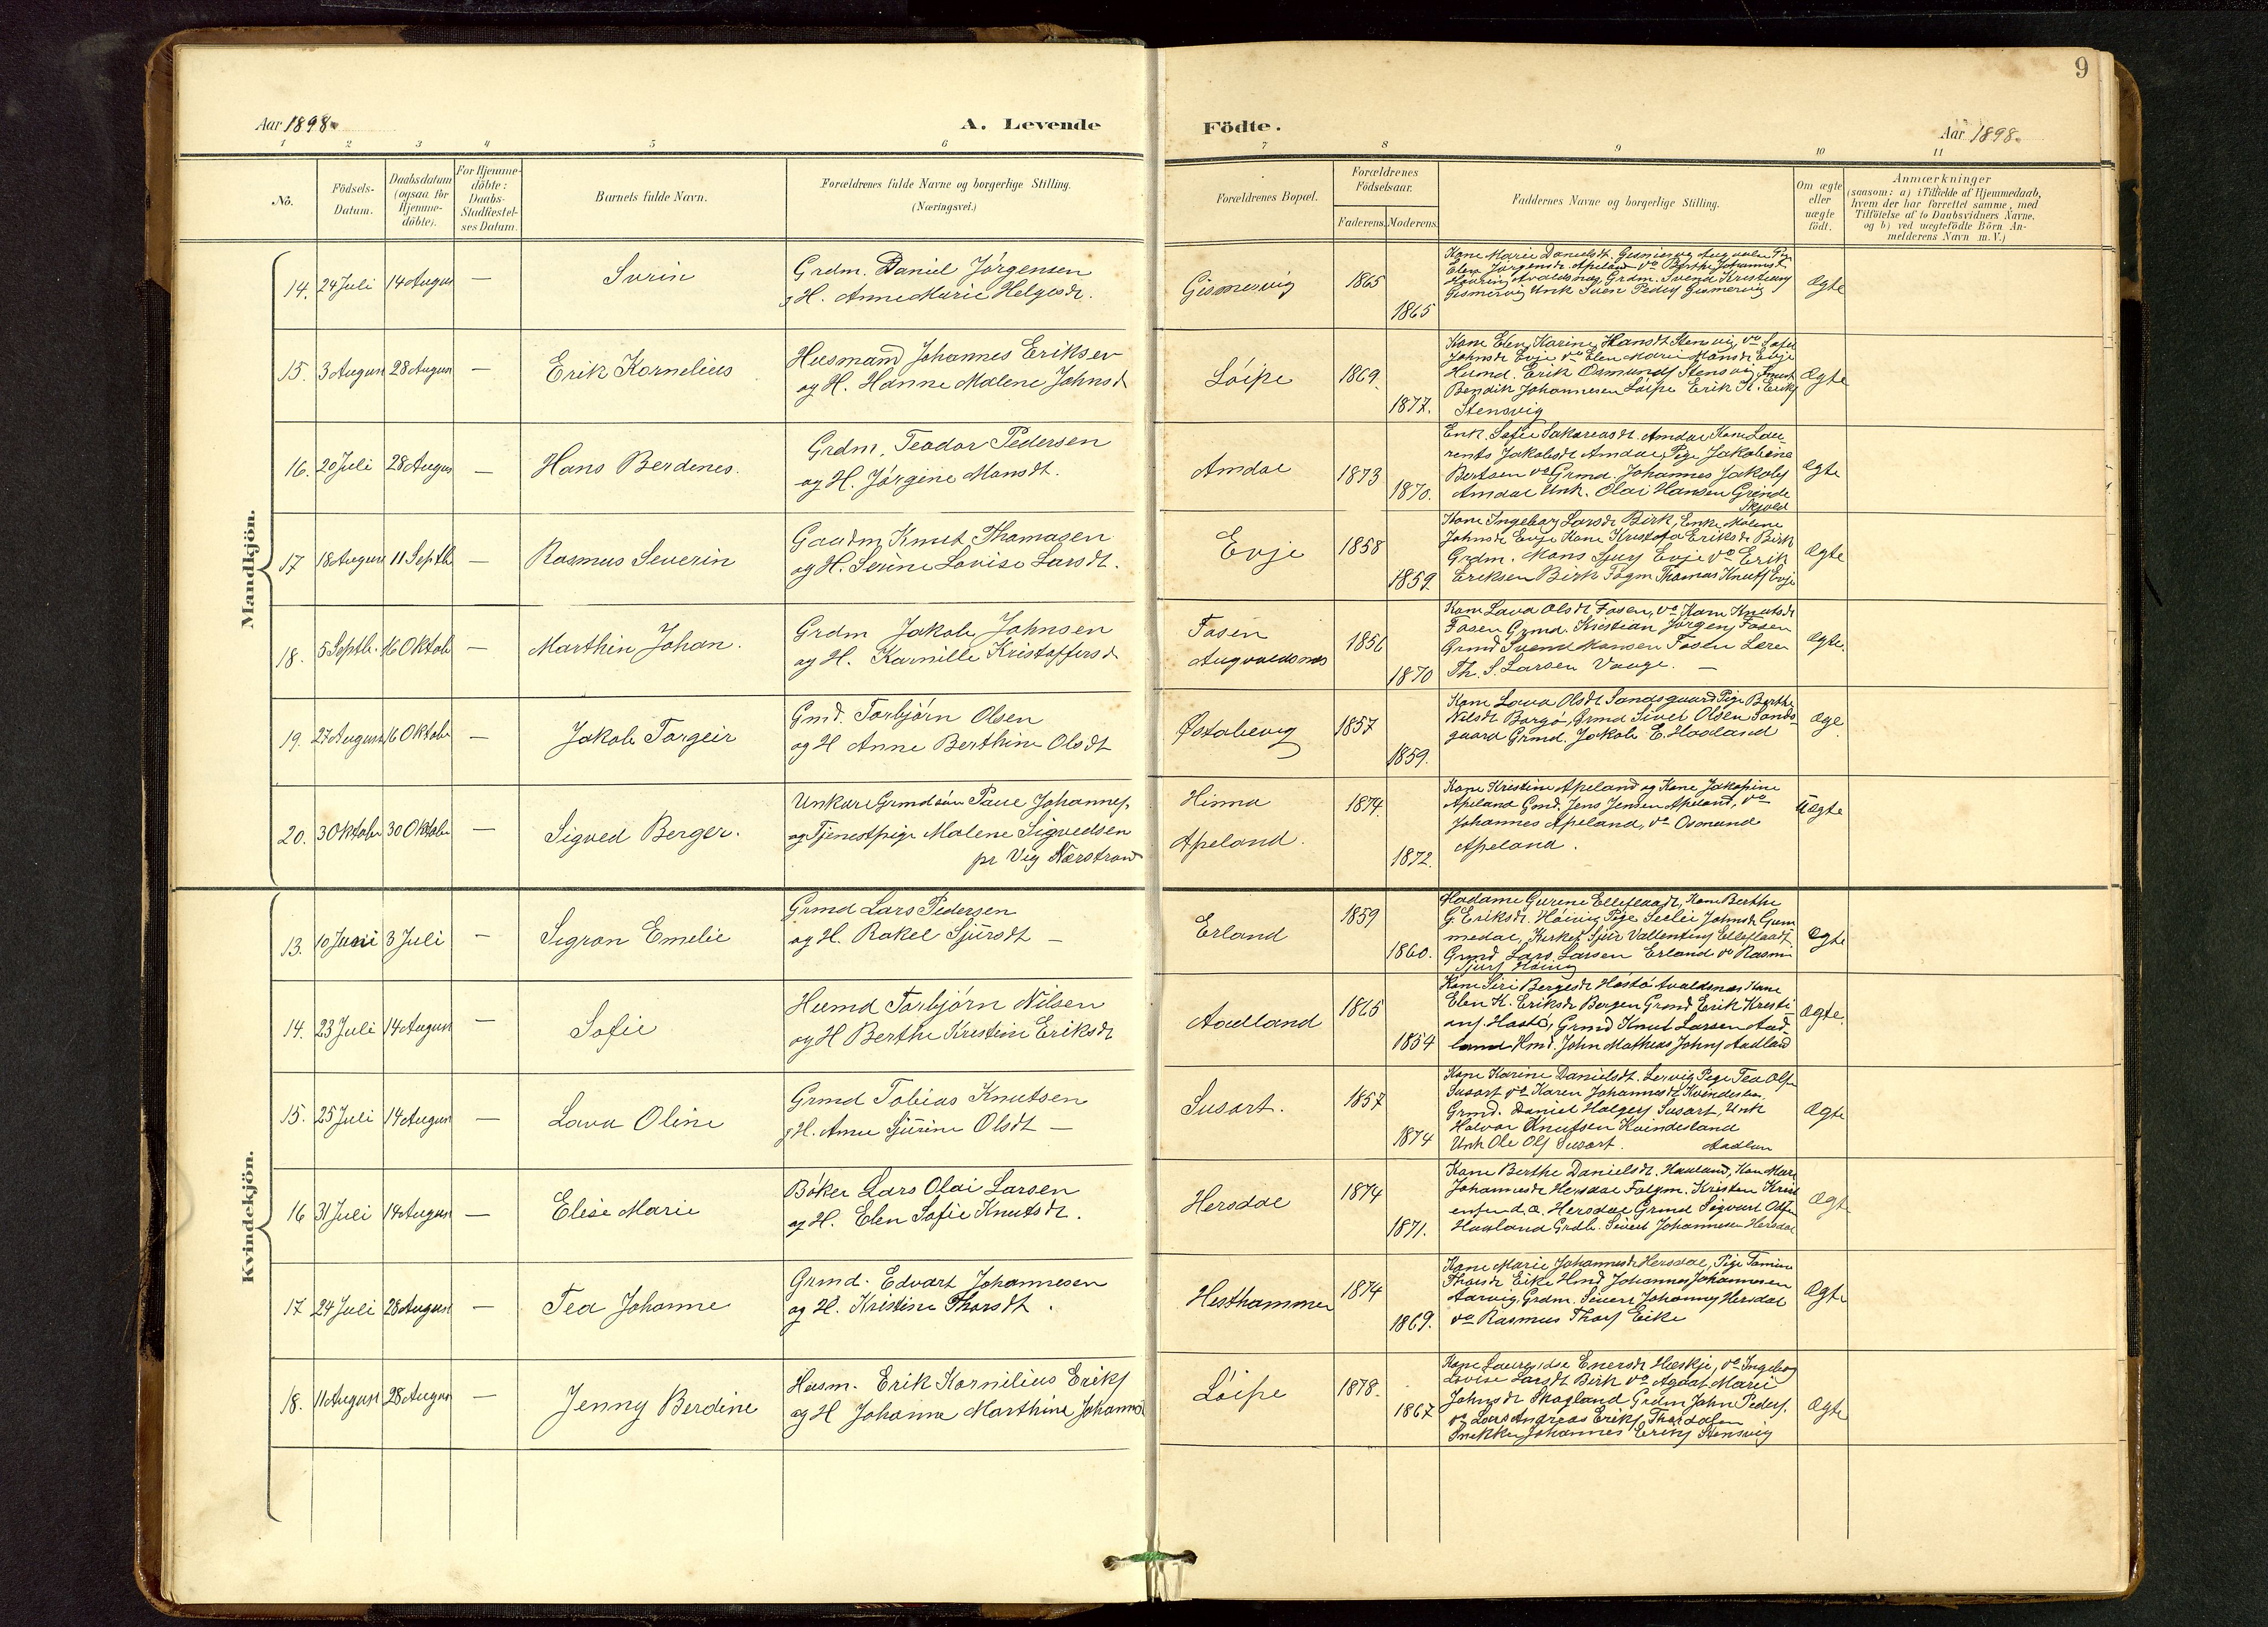 9
Aar 1898.
A. Levende
Födte.
Aar 1898.
1 2 3 4 5 6 7 8 9 10 11
No.
Födsels-Datum.
Daabsdatum (ogsaa for Hjemme-döbte).
For Hjemme-döbte: Daabs-Stadfæstel-ses Datum.
Barnets fulde Navn.
Forældrenes fulde Navne og borgerlige Stilling.
(Næringsvei.)
Forældrenes Bopæl.
Forældrenes Födselsaar.
Faderens. Moderens.
Faddernes Navne og borgerlige Stilling.
Om ægte eller uægte födt.
Anmærkninger
(saasom: a) i Tilfælde af Hjemmedaab,
hvem der har forrettet samme, med
Tilföielse af to Daabsvidners Navne,
og b) ved uægtefödte Börn An-
melderens Navn m. V.)
Mandkjön.
14. 24 Juli 14 August — Sorin
Grdm. Daniel Jörgensen
g H. Anne Marie Helgesdt.
Gismervig 1865 1865
Kone Marie Danielsdt. Gismervig
Elen Jörgensdt. Apeland do Berthe Johannesdt
Avaldsnæs Grdm. Svend Kristians
Gismervig Unk Sven Peders Gismervig
Ægte
15. 3 August 28 August — Erik Kornelius
Husmand Johannes Eriksen
og H. Hanne Malene Johnsdt
Löipe 1869. 1877.
Kone Elen Karine Hansdt Stensvig, do Sofie
Johnsdt Evje do Elen Marie Mansdt Evje
Husmd. Erik Osmunds Stensvig
Bendik Johannesen Löipe Erik K. Eriks
Stensvig
Ægte
16. 20 Juli 28 August — Hans Berdines.
Grdm. Teodor Pedersen
og H. Jörgine Monsdt.
Amdal 1873 1870.
Enk. Sofie Sakariasdt. Amdal Kone Lau-
rents Jakobsdt Amdal, Pige Jakobine
Bertsen do Grmd. Johannes Jakobs
Amdal Unk. Olai Hansen Grinde
Skjold
Ægte
17 18 August 11 Septb — Rasmus Severin
Gaardm Knut Thomasen
og H. Serine Lovise Larsdt.
Evje 1858 1859
Kone Ingeborg Larsdt Birk, Enke Malene
Johnsdt Evje Kone Kristofa Eriksdt Birk
Grdm. Mons Sjurs Evje do Erik
Eriksen Birk Fogm Thomas Knuts Evje
Ægte
18. 5 Septb. 16 Oktob — Marthin Johan.
Grdm Jakob Johnsen
og H. Karnille Kristoffersd
Fosen
Augvaldsnes 1856 1870
Kone Lava Olsdt Fosen, do Kone Knutsdt
Fosen Grmd. Kristian Jörgens Fosen
Grmd Svend Monsen Fosen Lærer
Th. S. Larsen Vaage. —
Ægte.
19. 27 August 16 Oktober — Jakob Torgeir
Gmd. Torbjörn Olsen
og H Anne Berthine Olsdt
Østabövig 1857 1859.
Kone Lava Olsdt Sandsgaard Pige Berthe
Nilsdt Borgö, Grmd Sivel Olsen Sands-
gaard Grmd. Jakob E. Haaland
Æge
20. 3 Oktober 30 Oktober — Sigved Berger.
Unkarl Grmdsön Paul Johannes.
og Tjenestpige Malene Sigvedsen
pr Vig Nærstrand
Hinna
Apeland. 1874. 1872.
Kone Kristine Apeland og Kone Jakobine
Apeland Gmd. Jens Jensen Apeland, do
Johannes Apeland, do Osmund
Apeland.
Uægte
Kvindekjön.
13. 10 Juni 3 Juli — Sigron Emelie
Grmd Lars Pedersen
og H. Rakel Sjursdt —
Erland 1859 1860.
Madame Gurine Elleflaadt, Kone Berthe
G. Eriksdt. Höinig Pige Seselie Johnsdt Gum-
medal, Kirket Sjur Vallentins Elleflaadt
Grmd Lars Larsen Erland do Rasmus
Sjurs Höinig
Ægte
14. 23 Juli 14 August — Sofie
Husmd Torbjörn Nilsen
og H Berthe Kristine Eriksdt
Aadland 1865 1854
Kone Siri Bergesdt Hastö Avaldsnes Kone
Elen K. Eriksdt Bergen Grmd Erik Kristi-
ans. Hastö, Grmd Knut Larsen Aad-
land Hmd. John Mathias Johns Aadland
Ægte.
15. 25 Juli 14 August — Lava Oline
Grmd Tobias Knutsen
g H. Anne Sjurine Olsdt —
Susort. 1857 1874
Kone Karine Danielsdt. Lervig Pige Tea Olsen
Susort do Karen Johannesdt Kvindesland
Grmd. Daniel Holgers Susort, Unk
Halvor Knutsen Kvindesland
Unk Ole Ols Susort.
Ægte
16 31 Juli 14 August — Elise Marie
Böker Lars Olai Larsen
og H. Elen Sofie Knutsdt.
Hersdal 1874 1871.
Kone Berthe Danielsdt. Haaland, Kone Mari
Johannesdt Hersdal Folgm. Kristen Krist
ensen d.o. Hersdal Grmd Sigvart Olsen
Haaland Grdb. Sivert Johannesen Hersdal
Ægte
17 24 Juli 28 August — Tea Johanne
Grmd. Edvart Johannesen
og H. Kristine Thorsdt.
Hesthammer 1874 1869.
Kone Marie Johannesdt Hersdal, Pige Tomine
Thorsdt Eike Hmd Johannes Johannesen
Aarvig, Grdm. Sivert Johannes Hersdal
do Rasmus Thors Eike
Ægte
18. 11 August 28 August — Jenny Berdine
Husm. Erik Kornilius Eriks
og H Johanne Marthine Johannes
Löipe 1878. 1867
Kone Laurendse Enersdt Heskje, do Ingeborg
Lovise Larsdt Birk do Agaat Marie
Johnsdt Skogland Grdm John Peders.
do Lars Andreas Eriks Thorsdalen
Snekker Johannes Eriks Stensvig
Ægte